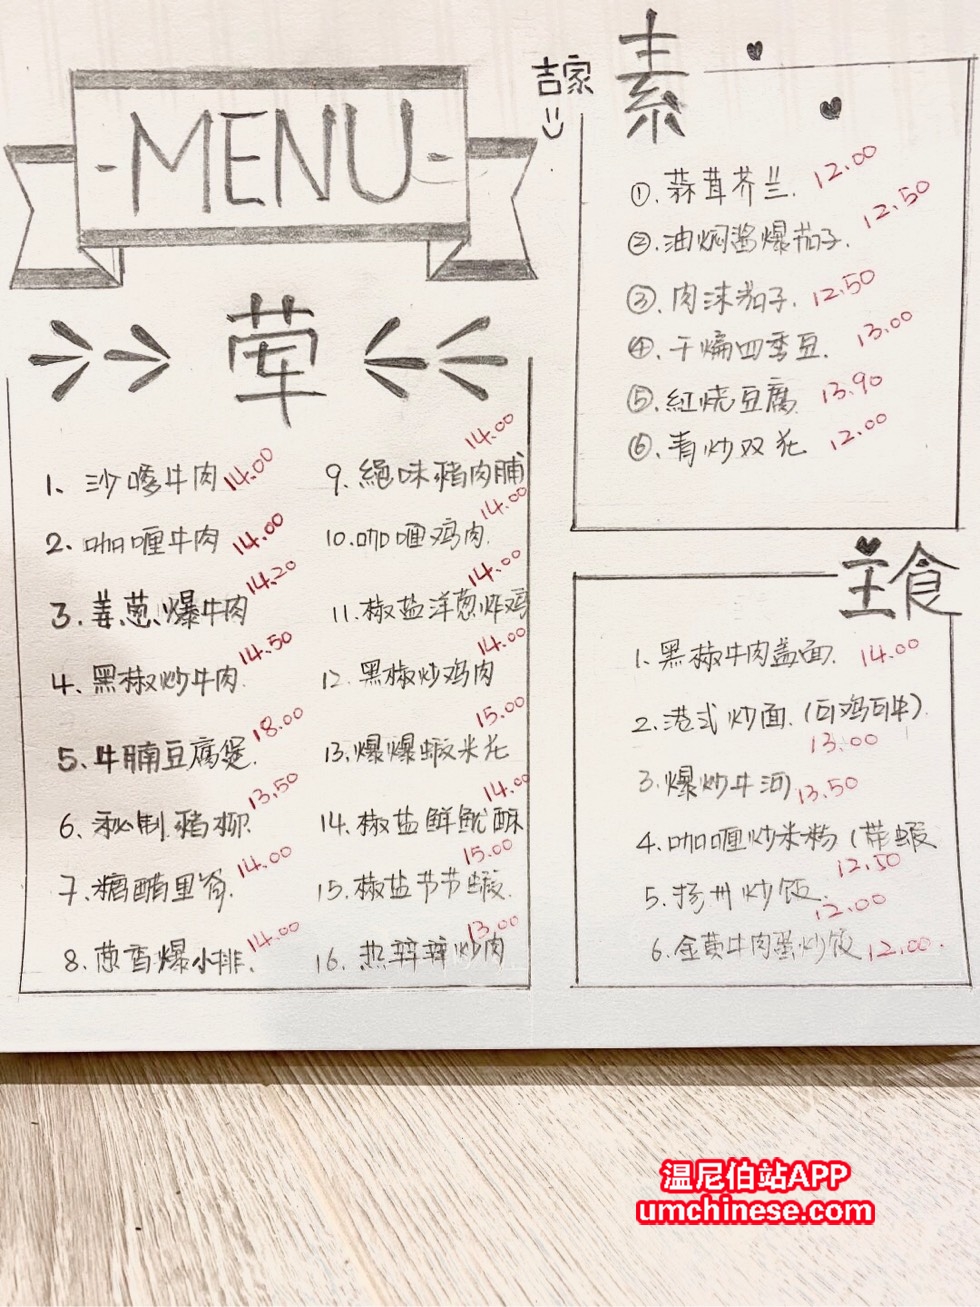 MENU
吉家
荤
1、沙嗲牛肉 14.00
2. 咖喱牛肉 14.00
3. 姜葱爆牛肉 14.20
4. 黑椒炒牛肉 14.50
5. 牛腩豆腐煲 18.00
6. 秘制豬柳 13.50
7. 糖醋里脊 14.00
8. 葱香爆小排 14.00
9. 絕味豬肉脯 14.00
10. 咖喱鸡肉 14.00
11. 椒盐洋葱炸鸡 14.00
12. 黑椒炒鸡肉 14.00
13. 爆爆蝦米花 15.00
14. 椒盐鲜鱿酥 14.00
15. 椒盐节节蝦 15.00
16. 炒肉 13.00
素
①. 蒜茸芥兰. 12.00
②. 油焖酱爆茄子. 12.50
③. 肉沫茄子. 12.50
④. 干煸四季豆. 13.00
⑤. 紅烧豆腐 13.90
⑥. 青炒双花 12.00
主食
1. 黑椒牛肉盖面. 14.00
2. 港式炒面. (可鸡可牛). 13.00
3. 爆炒牛河 13.50
4. 咖喱炒米粉 (带蝦 12.50
5. 扬州炒饭. 12.00
6. 金黄牛肉蛋炒饭 12.00.
温尼伯站APP
umchinese.com